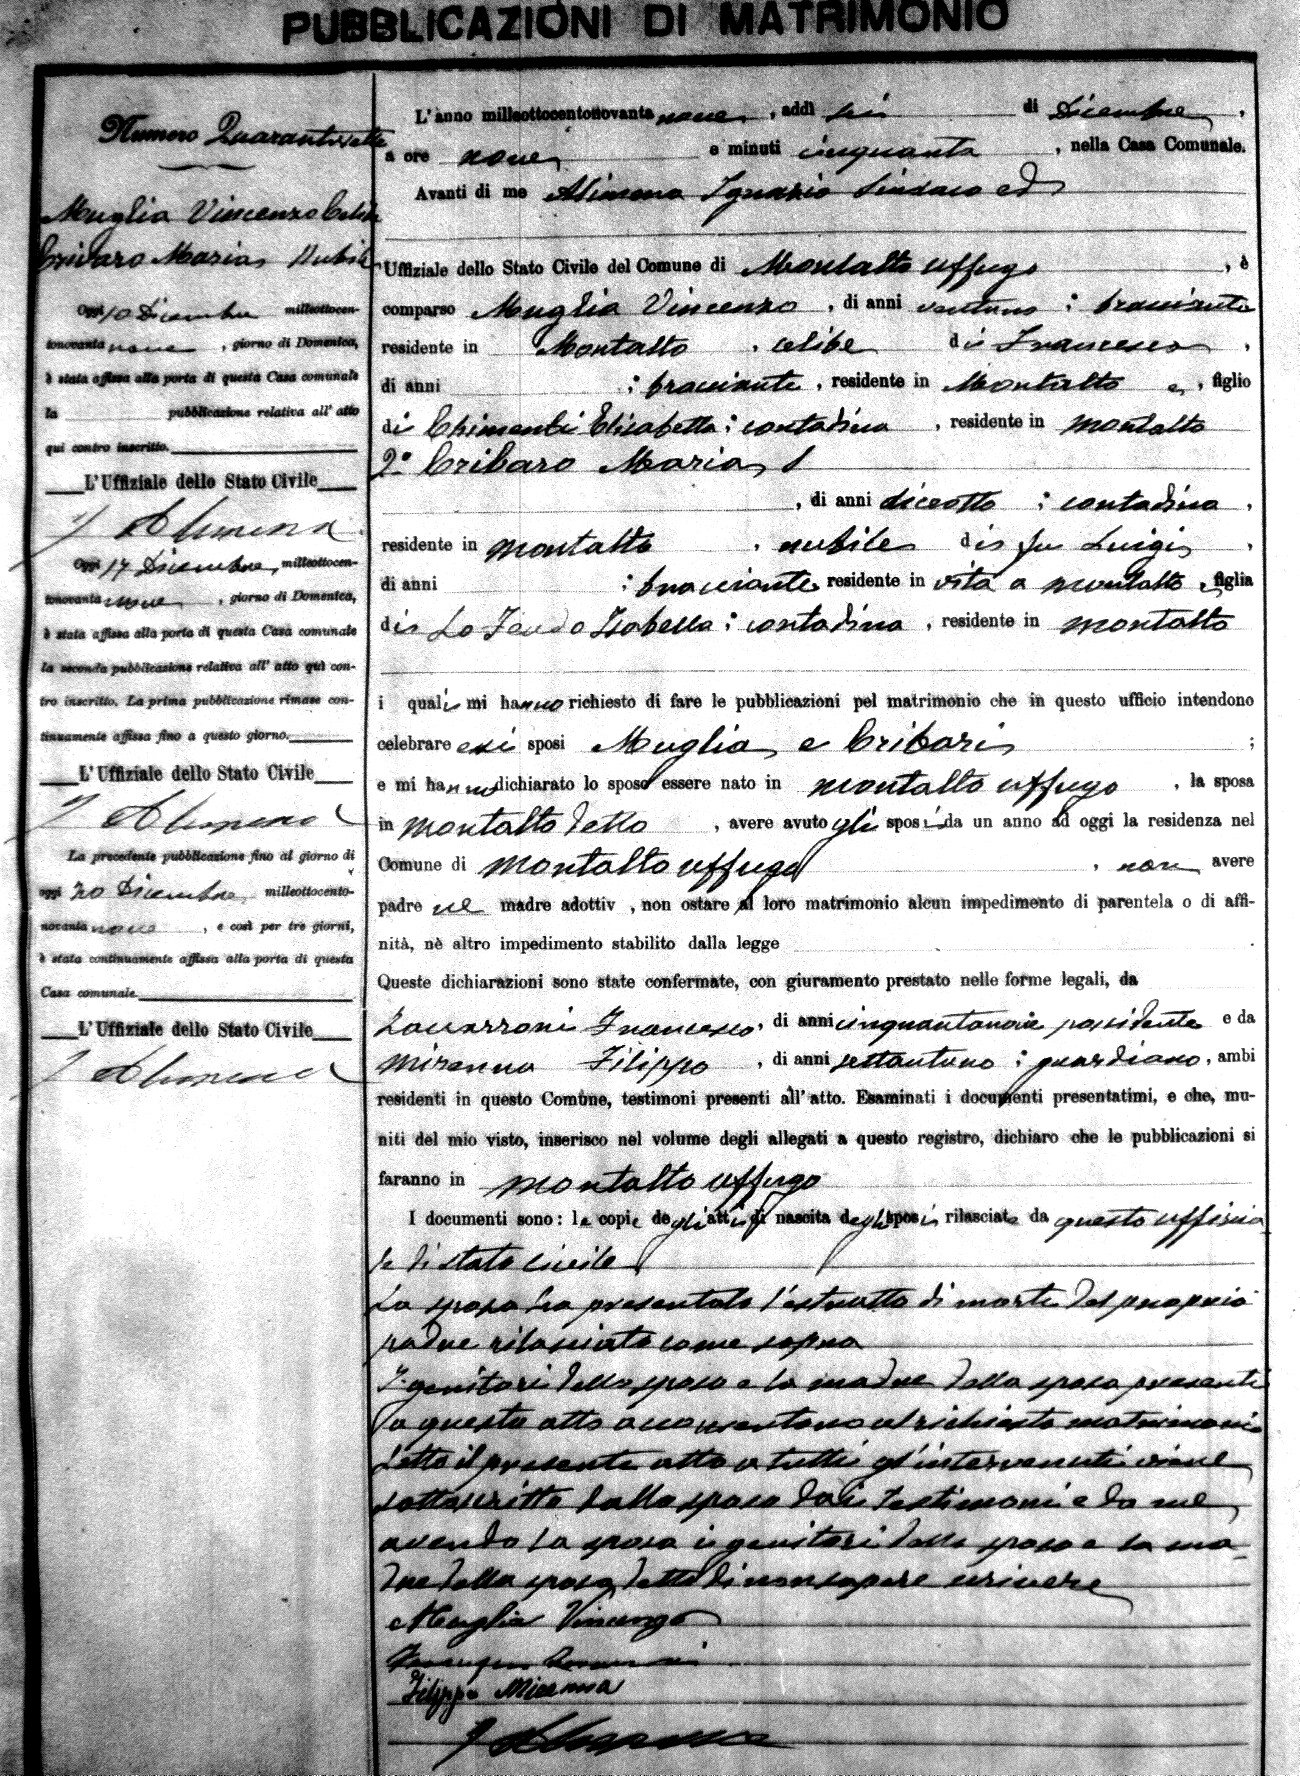 PUBBLICAZIONI DI MATRIMONIO
Numero Quarantisette
Muglia Vincenzo Celibe
Cribaro Maria Nubile
Oggi 10 Dicembre milleottocen-
tonovanta nove, giorno di Domenica,
è stata affissa alla porta di questa Casa comunale
la pubblicazione relativa all' atto
qui contro inscritto.
L'Uffiziale dello Stato Civile
I Alimena
Oggi 17 Dicembre, milleottocen-
tonovanta nove, giorno di Domenica,
è stata affissa alla porta di questa Casa comunale
la seconda pubblicazione relativa all' atto quì con-
tro inscritto. La prima pubblicazione rimase con-
tinuamente affissa fino a questo giorno.
L'Uffiziale dello Stato Civile
I Alimena
La precedente pubblicazione fino al giorno di
oggi 20 Dicembre, milleottocento-
novanta nove, e così per tre giorni,
è stata continuamente affissa alla porta di questa
Casa comunale.
L'Uffiziale dello Stato Civile
I Alimena
L'anno milleottocentonovanta nove, addì sei di Dicembre,
a ore nove e minuti cinquanta, nella Casa Comunale.
Avanti di me Alimena Ignazio Sindaco ed
Uffiziale dello Stato Civile del Comune di Montalto Uffugo, è
comparso Muglia Vincenzo, di anni ventuno; bracciante
residente in Montalto, celibe di Francesco,
di anni ; bracciante, residente in Montalto e, figlio
di Chimenti Elisabetta; contadina, residente in Montalto
2° Cribaro Maria
, di anni diciotto; contadina,
residente in Montalto, nubile di fu Luigi,
di anni ; bracciante residente in vita a Montalto e, figlia
di Lo Feudo Isabella; contadina, residente in Montalto
i quali mi hanno richiesto di fare le pubblicazioni pel matrimonio che in questo ufficio intendono
celebrare essi sposi Muglia e Cribari;
e mi hanno dichiarato lo sposo essere nato in Montalto Uffugo, la sposa
in Montalto detto, avere avuto gli sposi da un anno ad oggi la residenza nel
Comune di Montalto Uffugo, non avere
padre nè madre adottiv , non ostare al loro matrimonio alcun impedimento di parentela o di affi-
nità, nè altro impedimento stabilito dalla legge
Queste dichiarazioni sono state confermate, con giuramento prestato nelle forme legali, da
Francesco, di anni cinquantanove possidente e da
Mirenna Filippo, di anni settantuno; guardiano, ambi
residenti in questo Comune, testimoni presenti all'atto. Esaminati i documenti presentatimi, e che, mu-
niti del mio visto, inserisco nel volume degli allegati a questo registro, dichiaro che le pubblicazioni si
faranno in Montalto Uffugo
I documenti sono: le copie degli atti di nascita degli sposi rilasciate da questo uffizio
di stato civile
La sposa ha presentato l'estratto di morte del proprio
padre rilasciato come sopra
I genitori dello sposo e la madre della sposa presenti
a questo atto acconsentono al richiesto matrimonio
Letto il presente atto a tutti gl'intervenuti viene
sottoscritto dallo sposo dai testimoni e da me
avendo la sposa i genitori dello sposo e la ma-
dre della sposa detto di non sapere scrivere
Muglia Vincenzo
Filippo Mirenna
I Alimena